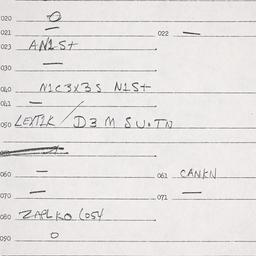 020 O
021 —
022 —
023 AN1St
030 —
040 N1C3X3S N1St
041 —
050 LEXT1K / D3M SU.TN
060 —
061 CANKN
070 —
071 —
080 ZAPLKO (054
090 O